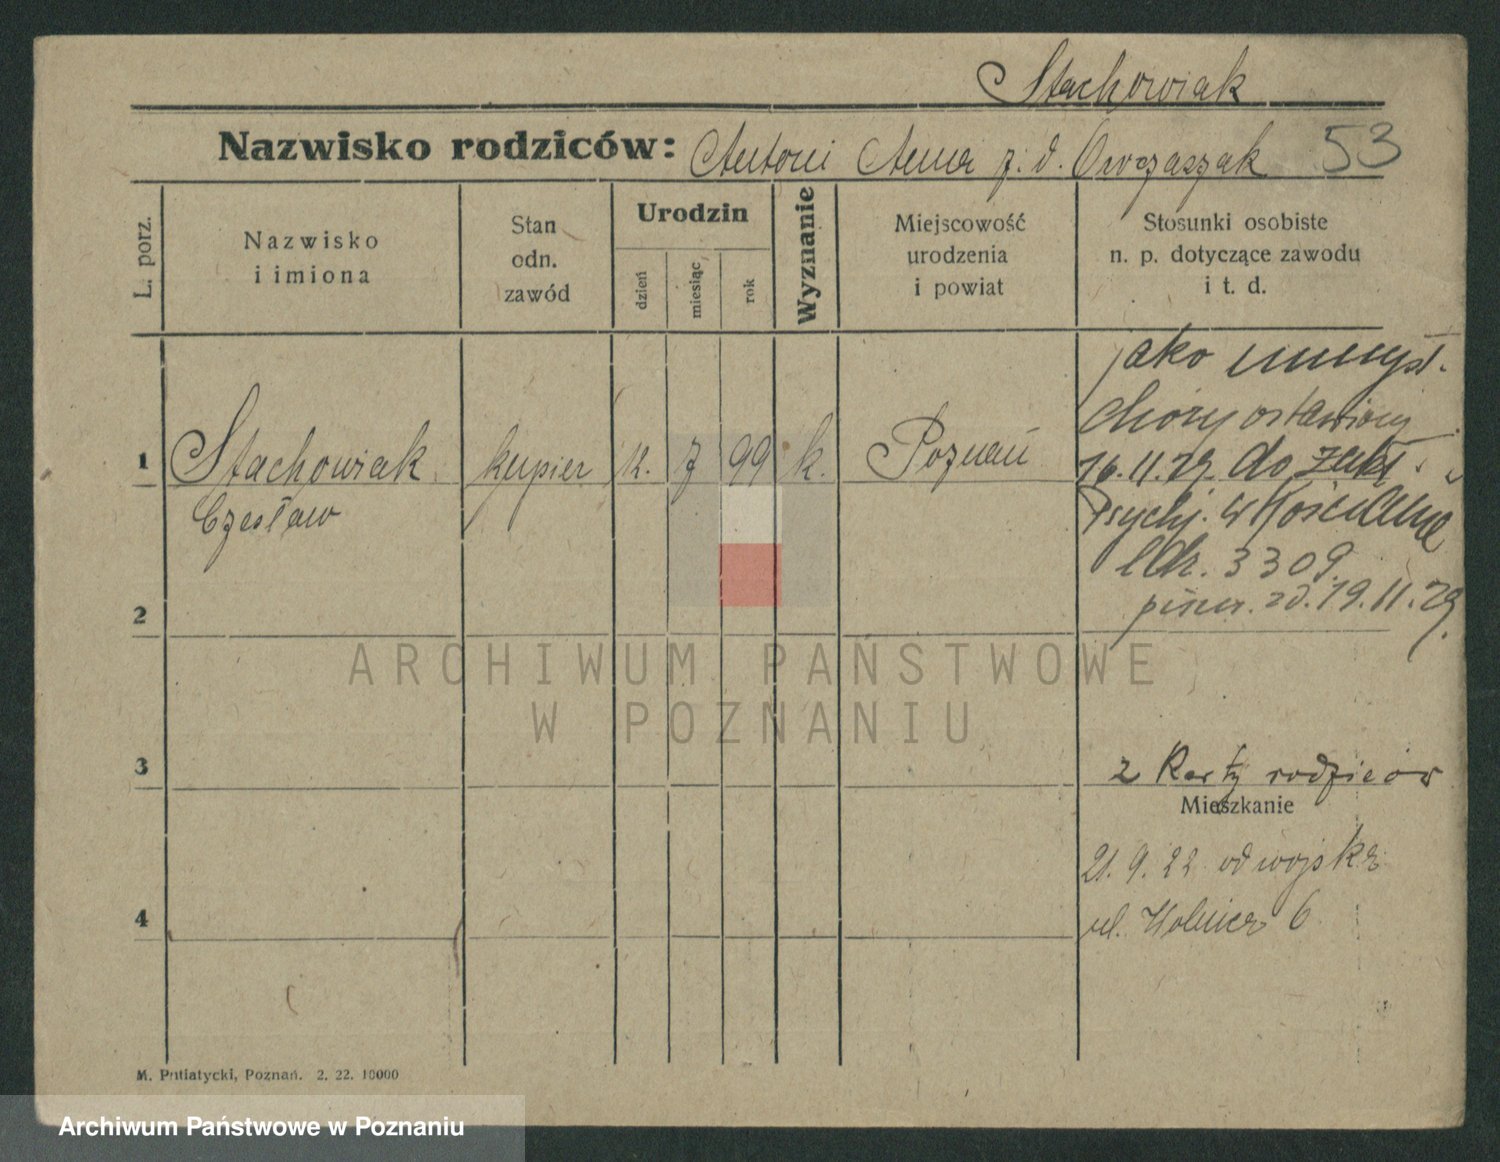 Stachowiak
Nazwisko rodziców: Antoni Anna z. d. Owczaszak 53
L. porz.
Nazwisko
i imiona
Stan
odn.
zawód
Urodzin
dzień
miesiąc
rok
Wyznanie
Miejscowość
urodzenia
i powiat
Stosunki osobiste
n. p. dotyczące zawodu
i t. d.
jako umysł.
chory
1 Stachowiak kupier 12. 7 99 k. Poznań
Czesław
16.11.29 do zakł.
Psychj. w Kościanie
3309.
19.11.29.
2
ARCHIWUM PAŃSTWOWE
W POZNANIU
3
2 Karty rodziców
Mieszkanie
21. 9. 22 od wojska
ul. 6
4
M. Putiatycki, Poznań. 2. 22. 10000
Archiwum Państwowe w Poznaniu